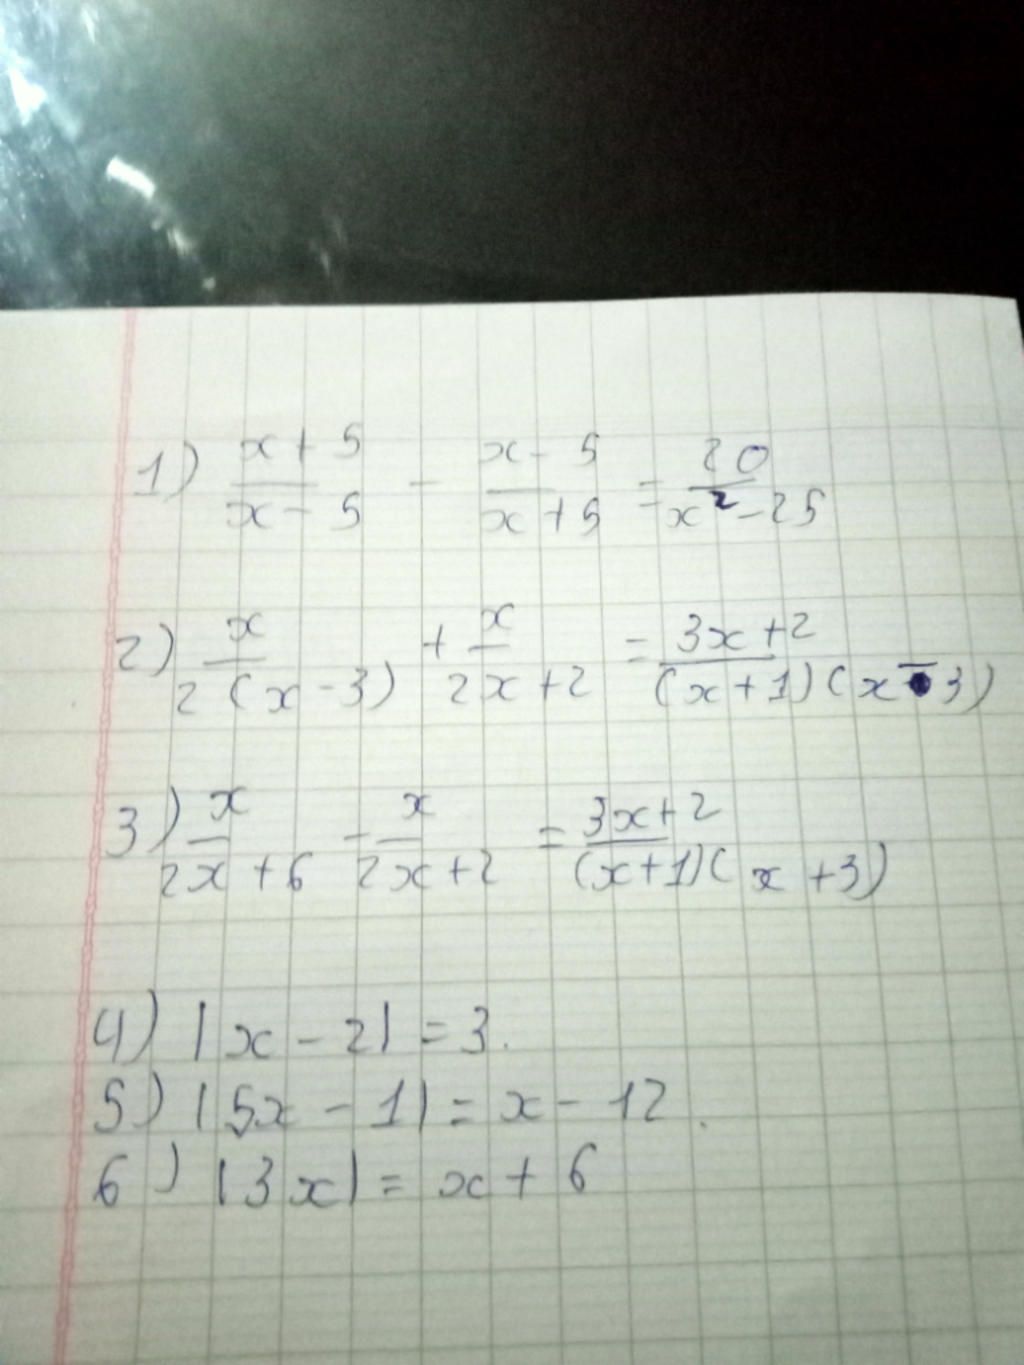 1) (x+5)/(x-5) - (x-5)/(x+5) = 20/(x²-25)
2) x/(2(x-3)) + x/(2x+2) = (3x+2)/((x+1)(x-3))
3) x/(2x+6) - x/(2x+2) = (3x+2)/((x+1)(x+3))
4) |x-2| = 3.
5) |5x-1| = x-12.
6) |3x| = x+6